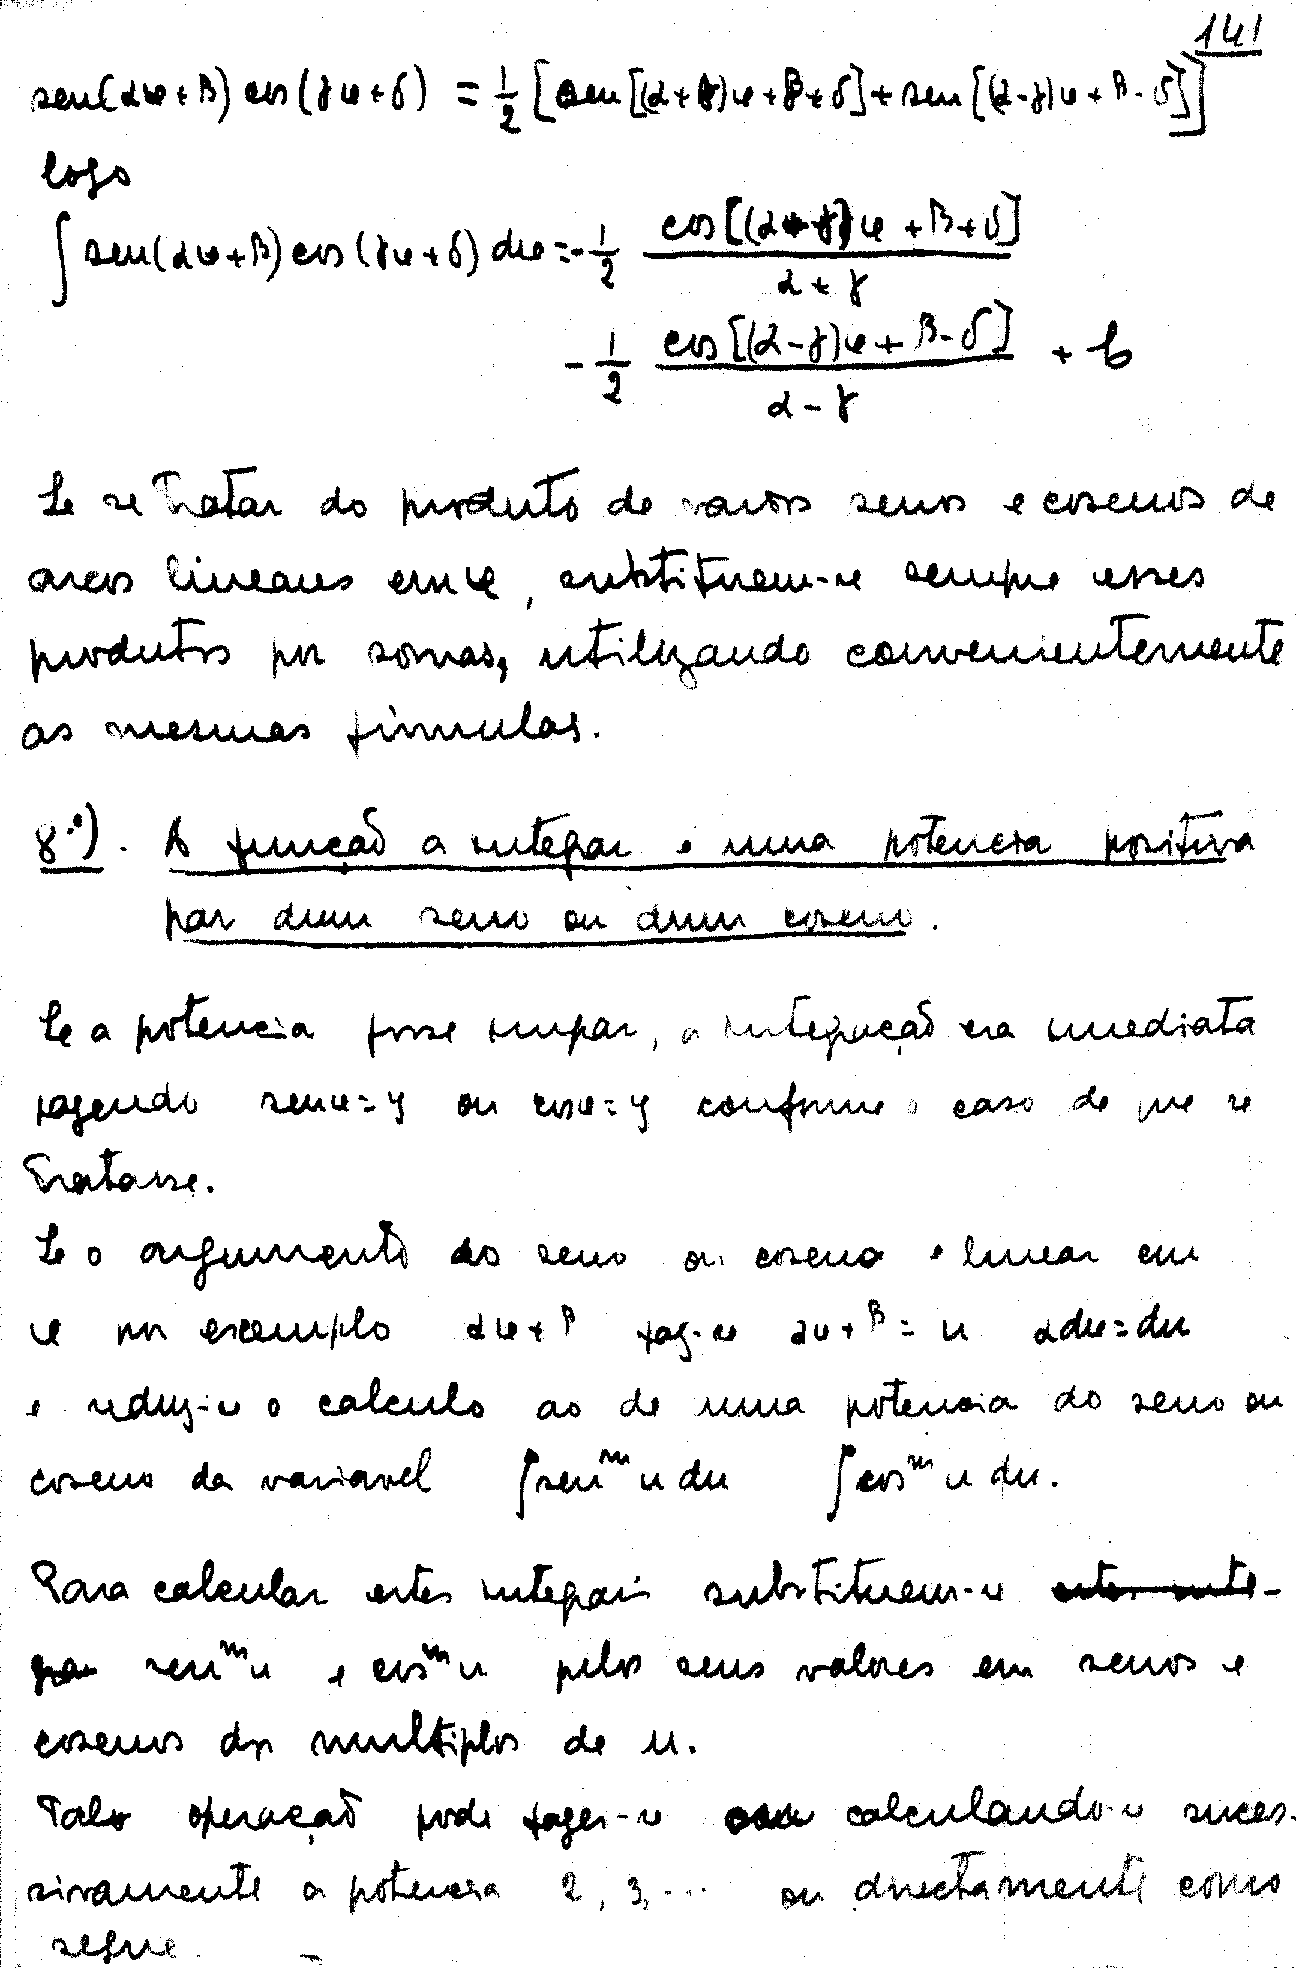 141
sen(αx+β) cos(γx+δ) = 1/2 [sen[(α+γ)x+β+δ]+sen[(α-γ)x+β-δ]]
logo
∫ sen(αx+β) cos(γx+δ) dx = -1/2 cos[(α+γ)x+β+δ] / α+γ
-1/2 cos[(α-γ)x+β-δ] / α-γ + C
Se se tratar do produto de varios senos e cosenos de
arcos lineares em x, substituem-se sempre esses
produtos por somas, utilizando convenientemente
as mesmas fórmulas.
8.º). A função a integrar é uma potencia positiva
par dum seno ou dum coseno.
Se a potencia fosse impar, a integração era imediata
fazendo senx=y ou cosx=y conforme o caso de que se
tratasse.
Se o argumento do seno ou coseno é linear em
x por exemplo αx+β faz-se αx+β=u αdx=du
e reduz-se o calculo ao de uma potencia do seno ou
coseno da variavel ∫senᵐ u du ∫cosᵐ u du.
Para calcular estes integrais substituem-se estes inte-
grai senᵐu e cosᵐu pelos seus valores em senos e
cosenos dos multiplos de u.
Tal operação pode fazer-se calculando-se suces-
sivamente a potencia 2, 3, ... ou directamente como
segue.